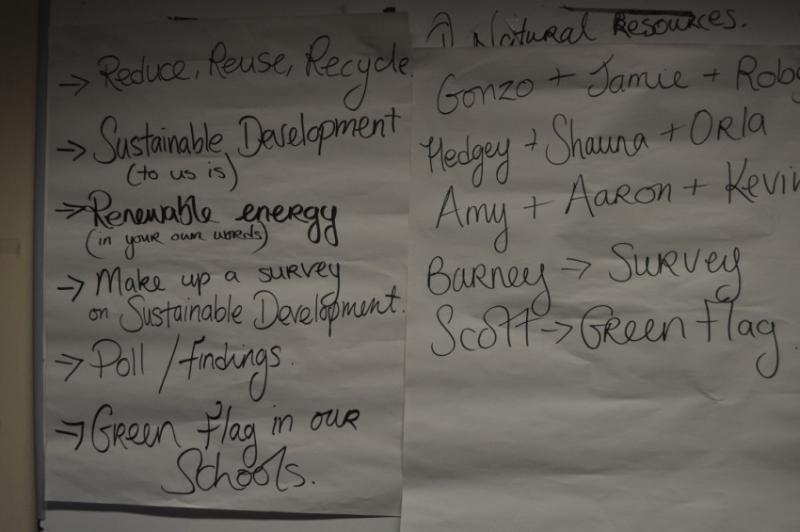 → Reduce, Reuse, Recycle.
→ Sustainable Development
(to us is)
→ Renewable energy
(in your own words)
→ Make up a survey
on Sustainable Development.
→ Poll / findings.
→ Green flag in our
Schools.
Natural Resources.
Gonzo + Jamie +
Hedgey + Shauna + Orla
Amy + Aaron + Kevin
Barney → Survey
Scott → Green flag.